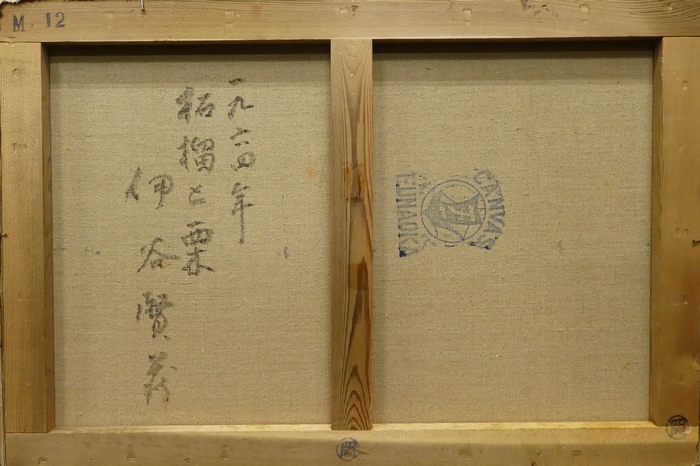 M 12
一九六四年
柘榴と栗
伊谷賢蔵
CANVAS
FUNAOKA